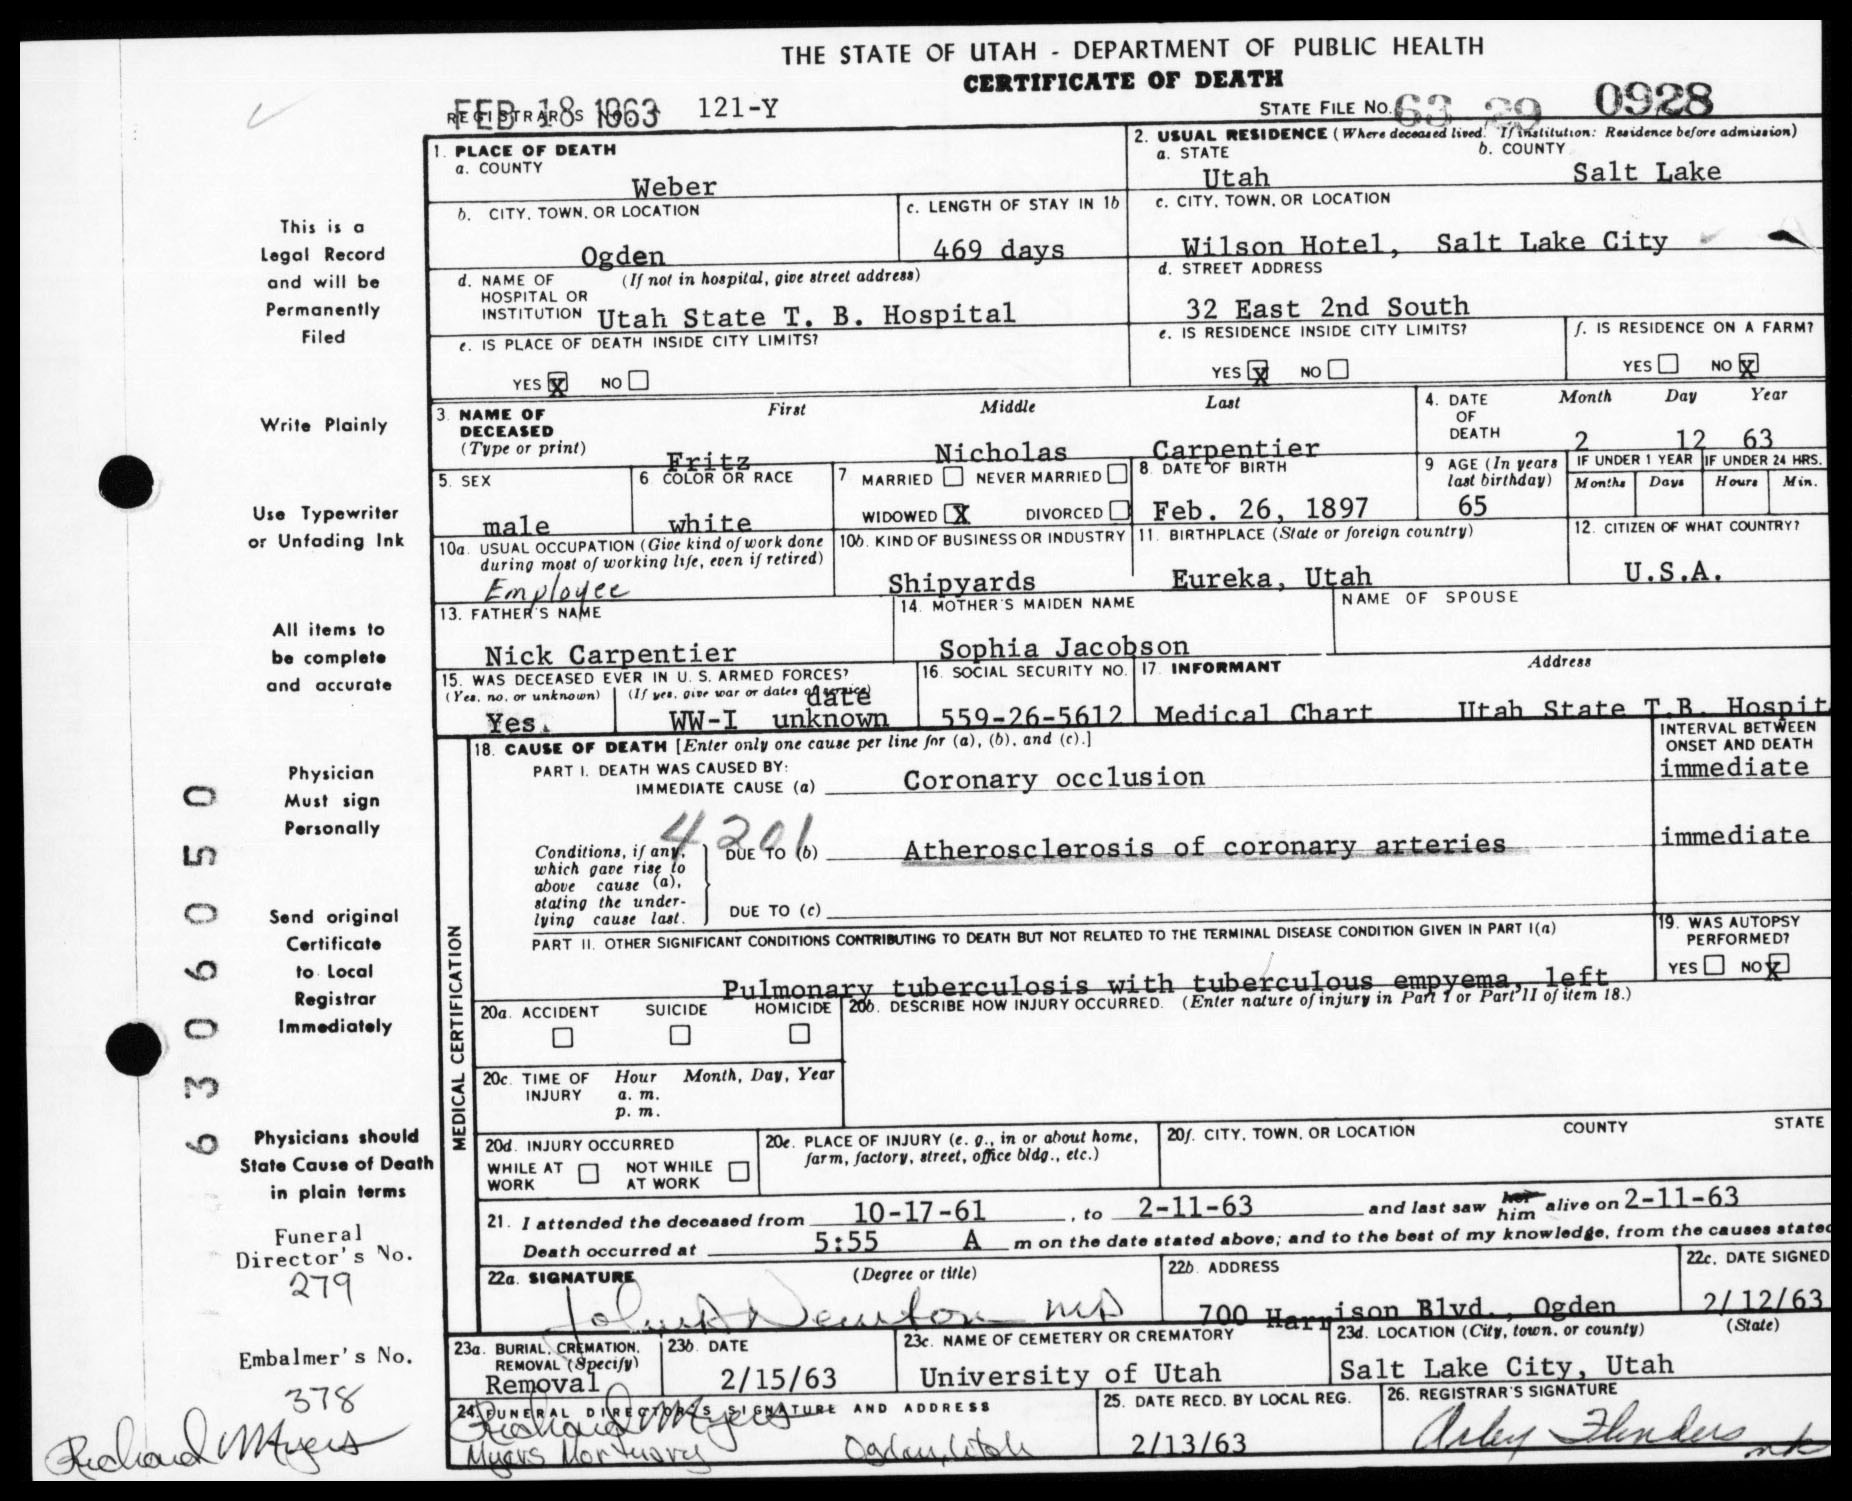 THE STATE OF UTAH - DEPARTMENT OF PUBLIC HEALTH
CERTIFICATE OF DEATH
FEB 18 1963 121-Y
STATE FILE NO. 63 29 0928
1. PLACE OF DEATH
a. COUNTY
Weber
2. USUAL RESIDENCE (Where deceased lived. If institution: Residence before admission)
a. STATE b. COUNTY
Utah Salt Lake
b. CITY, TOWN, OR LOCATION
Ogden
c. LENGTH OF STAY IN 1b
469 days
c. CITY, TOWN, OR LOCATION
Wilson Hotel, Salt Lake City
d. NAME OF HOSPITAL OR INSTITUTION (If not in hospital, give street address)
Utah State T. B. Hospital
d. STREET ADDRESS
32 East 2nd South
e. IS PLACE OF DEATH INSIDE CITY LIMITS?
YES X NO
e. IS RESIDENCE INSIDE CITY LIMITS?
YES X NO
f. IS RESIDENCE ON A FARM?
YES NO X
3. NAME OF DECEASED (Type or print)
First Middle Last
Fritz Nicholas Carpentier
4. DATE OF DEATH
Month Day Year
2 12 63
5. SEX
male
6. COLOR OR RACE
white
7. MARRIED NEVER MARRIED
WIDOWED X DIVORCED
8. DATE OF BIRTH
Feb. 26, 1897
9 AGE (In years last birthday)
65
IF UNDER 1 YEAR IF UNDER 24 HRS.
Months Days Hours Min.
10a. USUAL OCCUPATION (Give kind of work done during most of working life, even if retired)
Employee
10b. KIND OF BUSINESS OR INDUSTRY
Shipyards
11. BIRTHPLACE (State or foreign country)
Eureka, Utah
12. CITIZEN OF WHAT COUNTRY?
U.S.A.
13. FATHER'S NAME
Nick Carpentier
14. MOTHER'S MAIDEN NAME
Sophia Jacobson
NAME OF SPOUSE
15. WAS DECEASED EVER IN U. S. ARMED FORCES?
(Yes, no, or unknown) (If yes, give war or dates of service)
Yes. WW-I date unknown
16. SOCIAL SECURITY NO.
559-26-5612
17. INFORMANT Address
Medical Chart Utah State T.B. Hospit
MEDICAL CERTIFICATION
18. CAUSE OF DEATH [Enter only one cause per line for (a), (b), and (c).]
INTERVAL BETWEEN ONSET AND DEATH
PART I. DEATH WAS CAUSED BY:
IMMEDIATE CAUSE (a) Coronary occlusion immediate
4201
Conditions, if any, which gave rise to above cause (a), stating the underlying cause last.
DUE TO (b) Atherosclerosis of coronary arteries immediate
DUE TO (c)
PART II. OTHER SIGNIFICANT CONDITIONS CONTRIBUTING TO DEATH BUT NOT RELATED TO THE TERMINAL DISEASE CONDITION GIVEN IN PART I(a)
Pulmonary tuberculosis with tuberculous empyema, left
19. WAS AUTOPSY PERFORMED?
YES NO X
20a. ACCIDENT SUICIDE HOMICIDE
20b. DESCRIBE HOW INJURY OCCURRED. (Enter nature of injury in Part I or Part II of item 18.)
20c. TIME OF INJURY Hour Month, Day, Year
a. m.
p. m.
20d. INJURY OCCURRED
WHILE AT WORK NOT WHILE AT WORK
20e. PLACE OF INJURY (e. g., in or about home, farm, factory, street, office bldg., etc.)
20f. CITY, TOWN, OR LOCATION COUNTY STATE
21. I attended the deceased from 10-17-61, to 2-11-63 and last saw her him alive on 2-11-63
Death occurred at 5:55 A m on the date stated above; and to the best of my knowledge, from the causes stated
22a. SIGNATURE (Degree or title)
Newton MD
22b. ADDRESS
700 Harrison Blvd., Ogden
22c. DATE SIGNED
2/12/63
23a. BURIAL, CREMATION, REMOVAL (Specify)
Removal
23b. DATE
2/15/63
23c. NAME OF CEMETERY OR CREMATORY
University of Utah
23d. LOCATION (City, town, or county) (State)
Salt Lake City, Utah
24. FUNERAL DIRECTOR'S SIGNATURE AND ADDRESS
Richard Myers
Myers Mortuary Ogden, Utah
25. DATE RECD. BY LOCAL REG.
2/13/63
26. REGISTRAR'S SIGNATURE
Flenders
This is a
Legal Record
and will be
Permanently
Filed
Write Plainly
Use Typewriter
or Unfading Ink
All items to
be complete
and accurate
Physician
Must sign
Personally
Send original
Certificate
to Local
Registrar
Immediately
Physicians should
State Cause of Death
in plain terms
Funeral
Director's No.
279
Embalmer's No.
378
Richard Myers
6306050